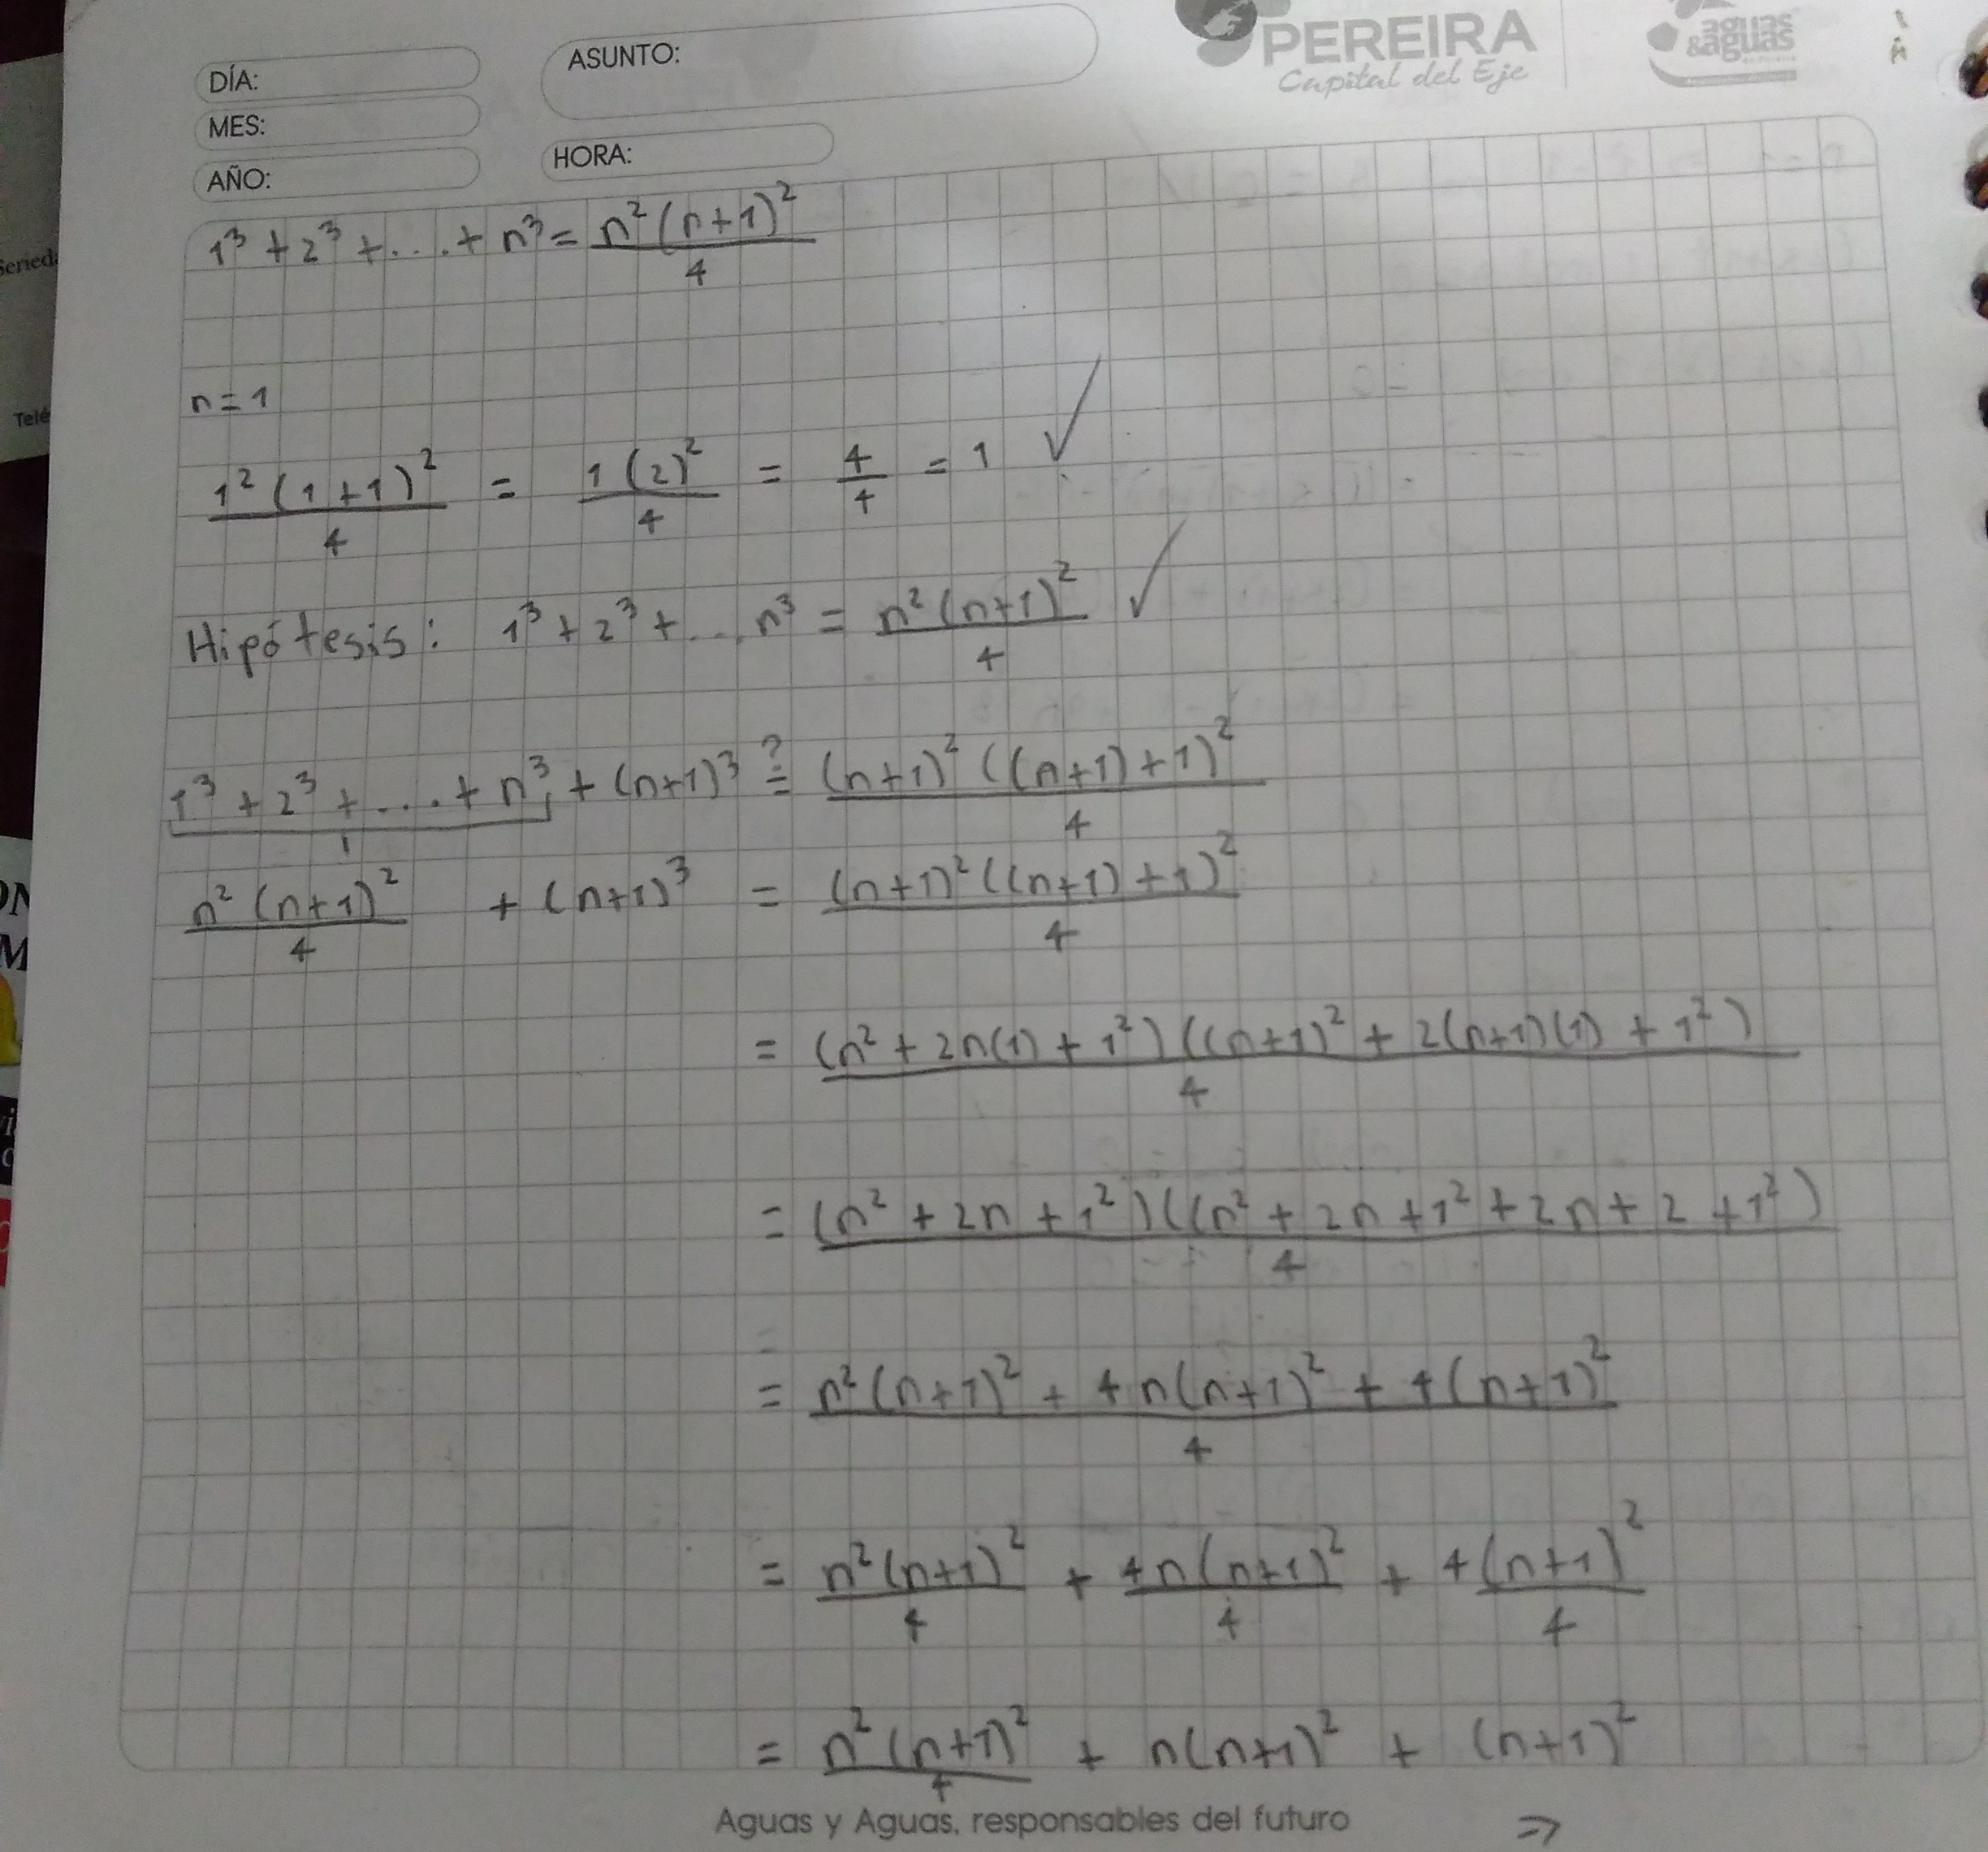 DÍA:
MES:
AÑO:
ASUNTO:
HORA:
PEREIRA
Capital del Eje
aguas
&aguas
1³ + 2³ + ... + n³ = n²(n+1)²/4
n = 1
1²(1+1)²/4 = 1(2)²/4 = 4/4 = 1 ✓
Hipótesis: 1³ + 2³ + ... n³ = n²(n+1)²/4 ✓
1³ + 2³ + ... + n³ + (n+1)³ ≟ (n+1)²((n+1)+1)²/4
n²(n+1)²/4 + (n+1)³ = (n+1)²((n+1)+1)²/4
= (n² + 2n(1) + 1²)((n+1)² + 2(n+1)(1) + 1²)/4
= (n² + 2n + 1²)((n² + 2n + 1² + 2n + 2 + 1²)/4
= n²(n+1)² + 4n(n+1)² + 4(n+1)²/4
= n²(n+1)²/4 + 4n(n+1)²/4 + 4(n+1)²/4
= n²(n+1)²/4 + n(n+1)² + (n+1)²
Aguas y Aguas, responsables del futuro
⇒